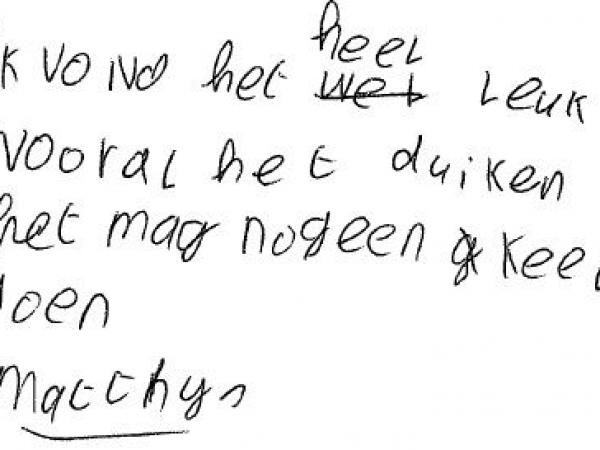 k vond het heel wel leuk
vooral het duiken
het mag nog een keer
doen
Matthys